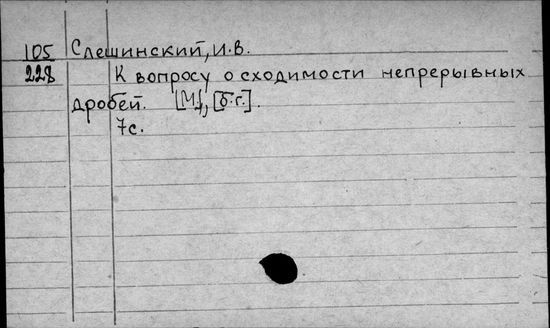 105 Слешинский, И.В.
228 К вопросу о сходимости непрерывных
дробей. [М.], [б.г.].
7с.